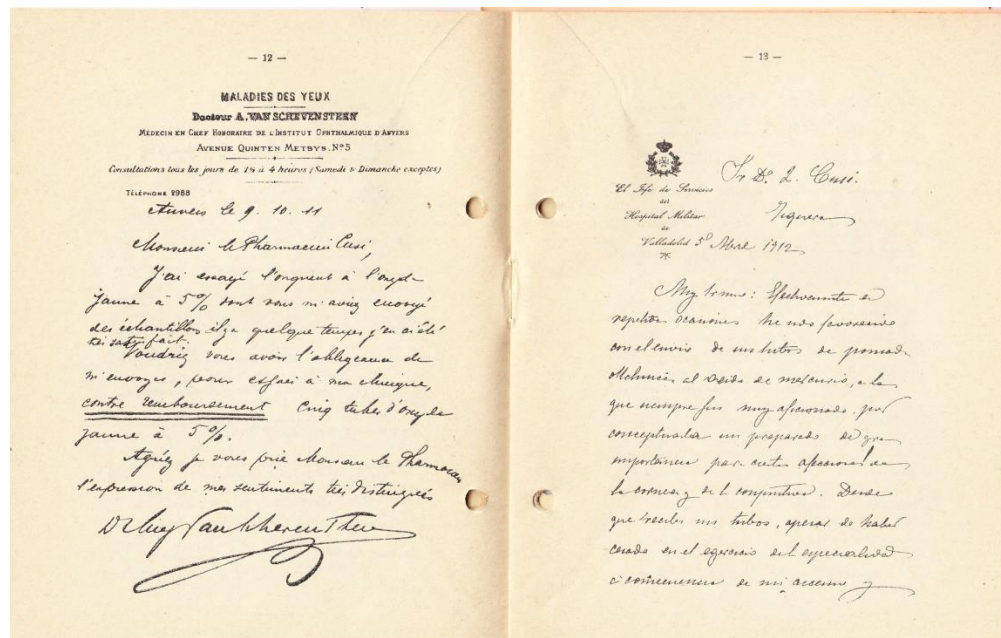 — 12 —
MALADIES DES YEUX
Docteur A. VAN SCHEVENSTEEN
MÉDECIN EN CHEF HONORAIRE DE L'INSTITUT OPHTHALMIQUE D'ANVERS
AVENUE QUINTEN METSYS, Nº 5
Consultations tous les jours de 1½ à 4 heures (Samedi & Dimanche exceptés)
TÉLÉPHONE 2988
Anvers le 9. 10. 11
Monsieur le Pharmacien Cusi,
J'ai essayé l'onguent à l'oxyde
jaune à 5% dont vous m'aviez envoyé
des échantillons il y a quelque temps j'en ai été
très satisfait.
Voudriez vous avoir l'obligeance de
m'envoyer, pour essai à ma clinique,
contre remboursement cinq tubes d'oxyde
jaune à 5%.
Agréez je vous prie Monsieur le Pharmacien
l'expression de mes sentiments très distingués
— 13 —
El Jefe de Servicios
del
Hospital Militar
de
Valladolid
Sr. D. J. Cusi.
Figueras
5 Abril 1912
Muy Sr. mio: Efectivamente en
repetidas ocasiones he sido favorecido
con el envio de sus tubos de pomada
oftálmica al óxido de mercurio, a la
que siempre fui muy aficionado por
conceptuarla un preparado de gran
importancia para ciertas afecciones de
la cornea y de la conjuntiva. Desde
que recibo sus tubos, apesar de haber
cesado en el egercicio de la especialidad
á consecuencia de mi ascenso y